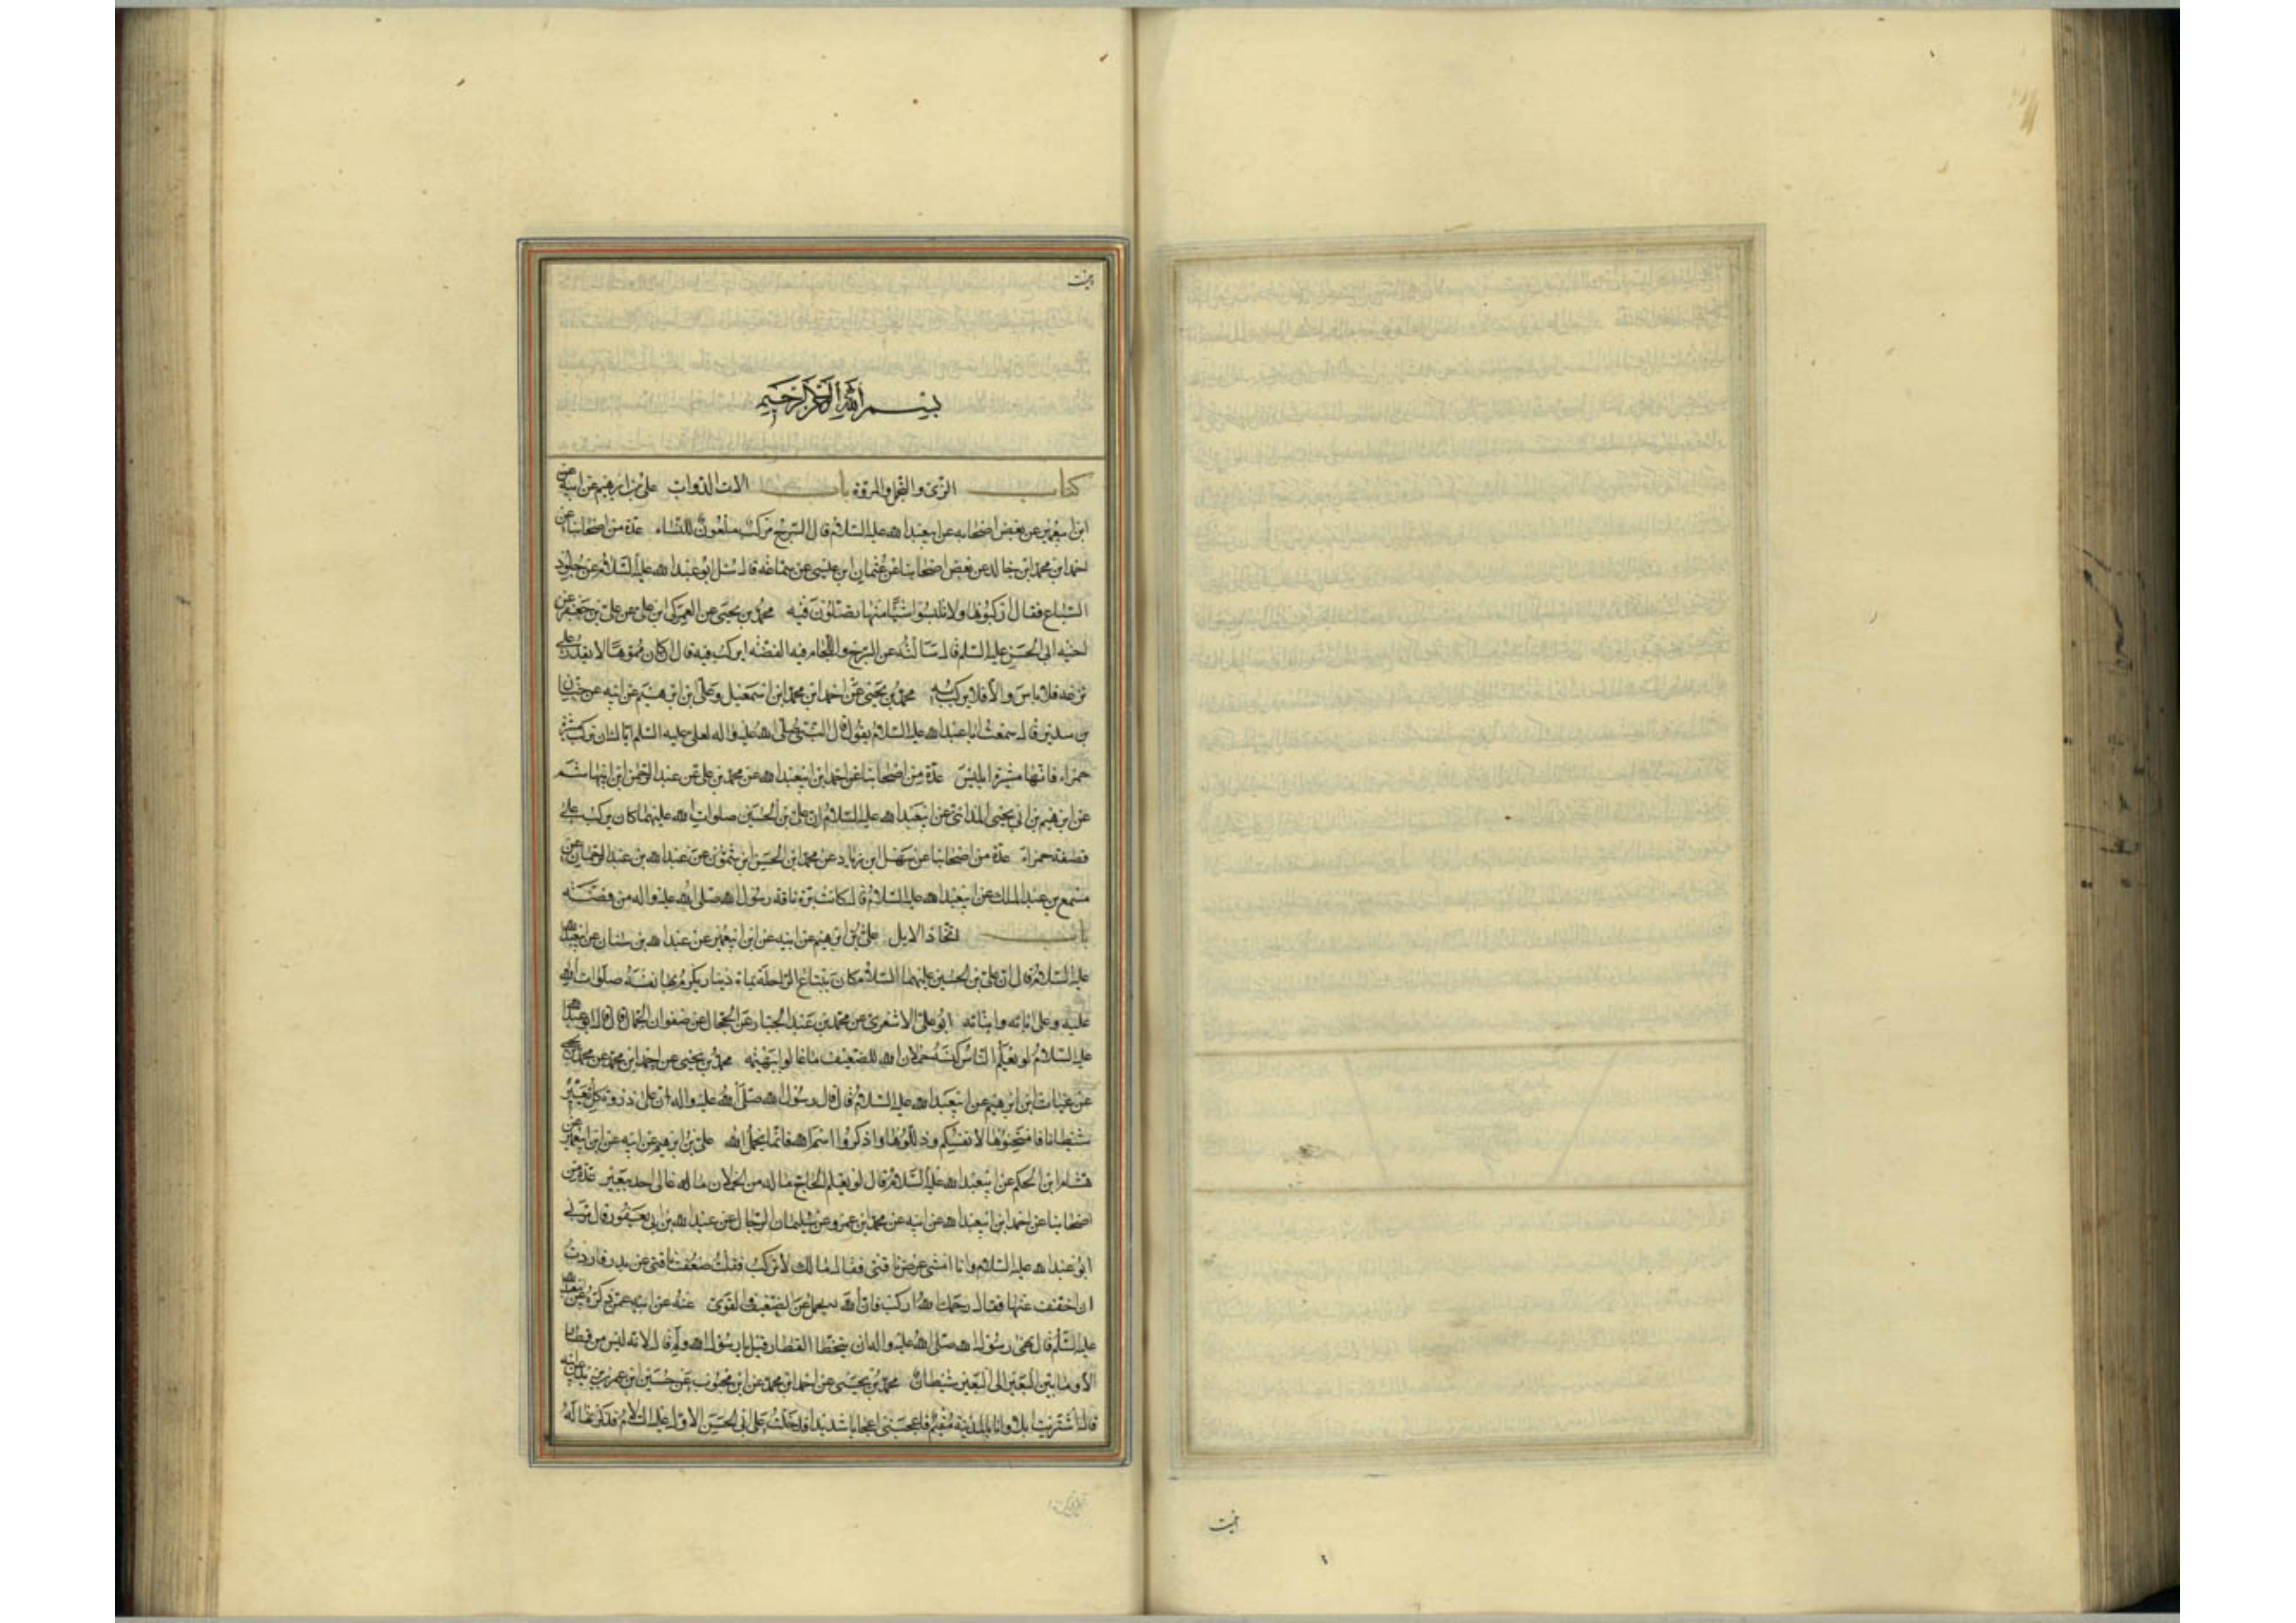 بسم الله الرحمن الرحيم
كتاب الزي والتجمل والمروة باب الات الدواب علي بن ابرهيم عن ابيه عن
ابن ابيعمير عن بعض اصحابه عن ابيعبد الله عليه السلام قال السرج مركب ملعون للنساء عدة من اصحابنا عن
احمد ابن محمد ابن خالد عن بعض اصحابنا عن عثمان ابن عيسى عن سماعه قال سئل ابو عبد الله عليه السلام عن جلود
السباع فقال اركبوها ولا تلبسوا شيئا منها تصلون فيه محمد بن يحيى عن العمركي ابن علي عن علي بن جعفر عن
اخيه ابي الحسن عليه السلم قال سالته عن السرج واللجام فيه الفضه ايركب فيه قال ان كان مموها لا يقدر على
نزعه فلا باس والا فلا يركب به محمد بن يحيى عن احمد ابن محمد ابن اسمعيل وعلي ابن ابرهيم عن ابيه عن حنان
بن سدير قال سمعت ابا عبد الله عليه السلام يقول قال النبي صلى الله عليه واله لعلي عليه السلم اياك ان تركب ميثرة
حمراء فانها ميثرة ابليس عدة من اصحابنا عن احمد ابن ابيعبد الله عن محمد بن علي عن عبد الرحمن ابن ابيهاشم
عن ابرهيم بن ابي يحيى المدائني عن ابيعبد الله عليه السلام ان علي بن الحسين صلوات الله عليهما كان يركب على
قطيفة حمراء عدة من اصحابنا عن سهل ابن زياد عن محمد ابن الحسن ابن شمون عن عبد الله بن عبد الرحمان عن
مسمع بن عبد الملك عن ابيعبد الله عليه السلام قال كانت برة ناقه رسول الله صلى الله عليه واله من فضه
باب اتخاذ الابل علي بن ابرهيم عن ابيه عن ابن ابيعمير عن عبد الله بن سنان عن ابيعبد الله
عليه السلام قال ان علي بن الحسين عليهما السلام كان يبتاع الراحلة بماة دينار يكرم بها نفسه صلوات الله
عليه وعلى ابائه وابنائه ابو علي الاشعري عن محمد بن عبد الجبار عن الحجال عن صفوان الجمال قال قال ابو عبد الله
عليه السلام لو يعلم الناس كنه حملان الله للضعيف ما غالوا ببهيمة محمد بن يحيى عن احمد ابن محمد عن محمد بن يحيى
عن غياث ابن ابرهيم عن ابيعبد الله عليه السلام قال قال رسول الله صلى الله عليه واله ان على ذروة كل بعير
شيطانا فامتحنوها لانفسكم وذللوها واذكروا اسم الله فانما يحمل الله علي بن ابرهيم عن ابيه عن ابن ابيعمير عن
هشام ابن الحكم عن ابيعبد الله عليه السلام قال لو يعلم الحاج ما له من الحملان ما غالى احد ببعير عدة من
اصحابنا عن احمد ابن ابيعبد الله عن ابيه عن محمد ابن عمرو عن سليمان الرحال عن عبد الله بن ابي يعفور قال مر بي
ابو عبد الله عليه السلام وانا امشي عن ناقتي فقال مالك لا تركب فقلت ضعفت ناقتي فاردت
ان اخفف عنها فقال رحمك الله اركب فان الله يحمل عن الضعيف والقوي عنه عن ابيه عمن ذكره عن ابيعبد الله
عليه السلم قال نهى رسول الله صلى الله عليه واله ان يتخطا القطار قيل يا رسول الله ولم قال لانه ليس من قطار
الا وما بين البعير الى البعير شيطان محمد بن يحيى عن احمد ابن محمد عن ابن محبوب عن حسين ابن عمر بن يزيد عن ابيه
قال اشتريت ابلا وانا بالمدينة مقيم فاعجبتني اعجابا شديدا فدخلت على ابي الحسن الاول عليه السلام فذكرتها له